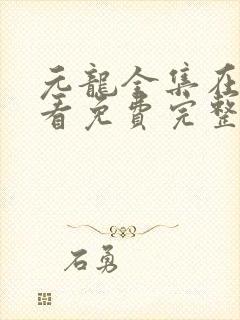 元龍全集在
看免費完整
石勇